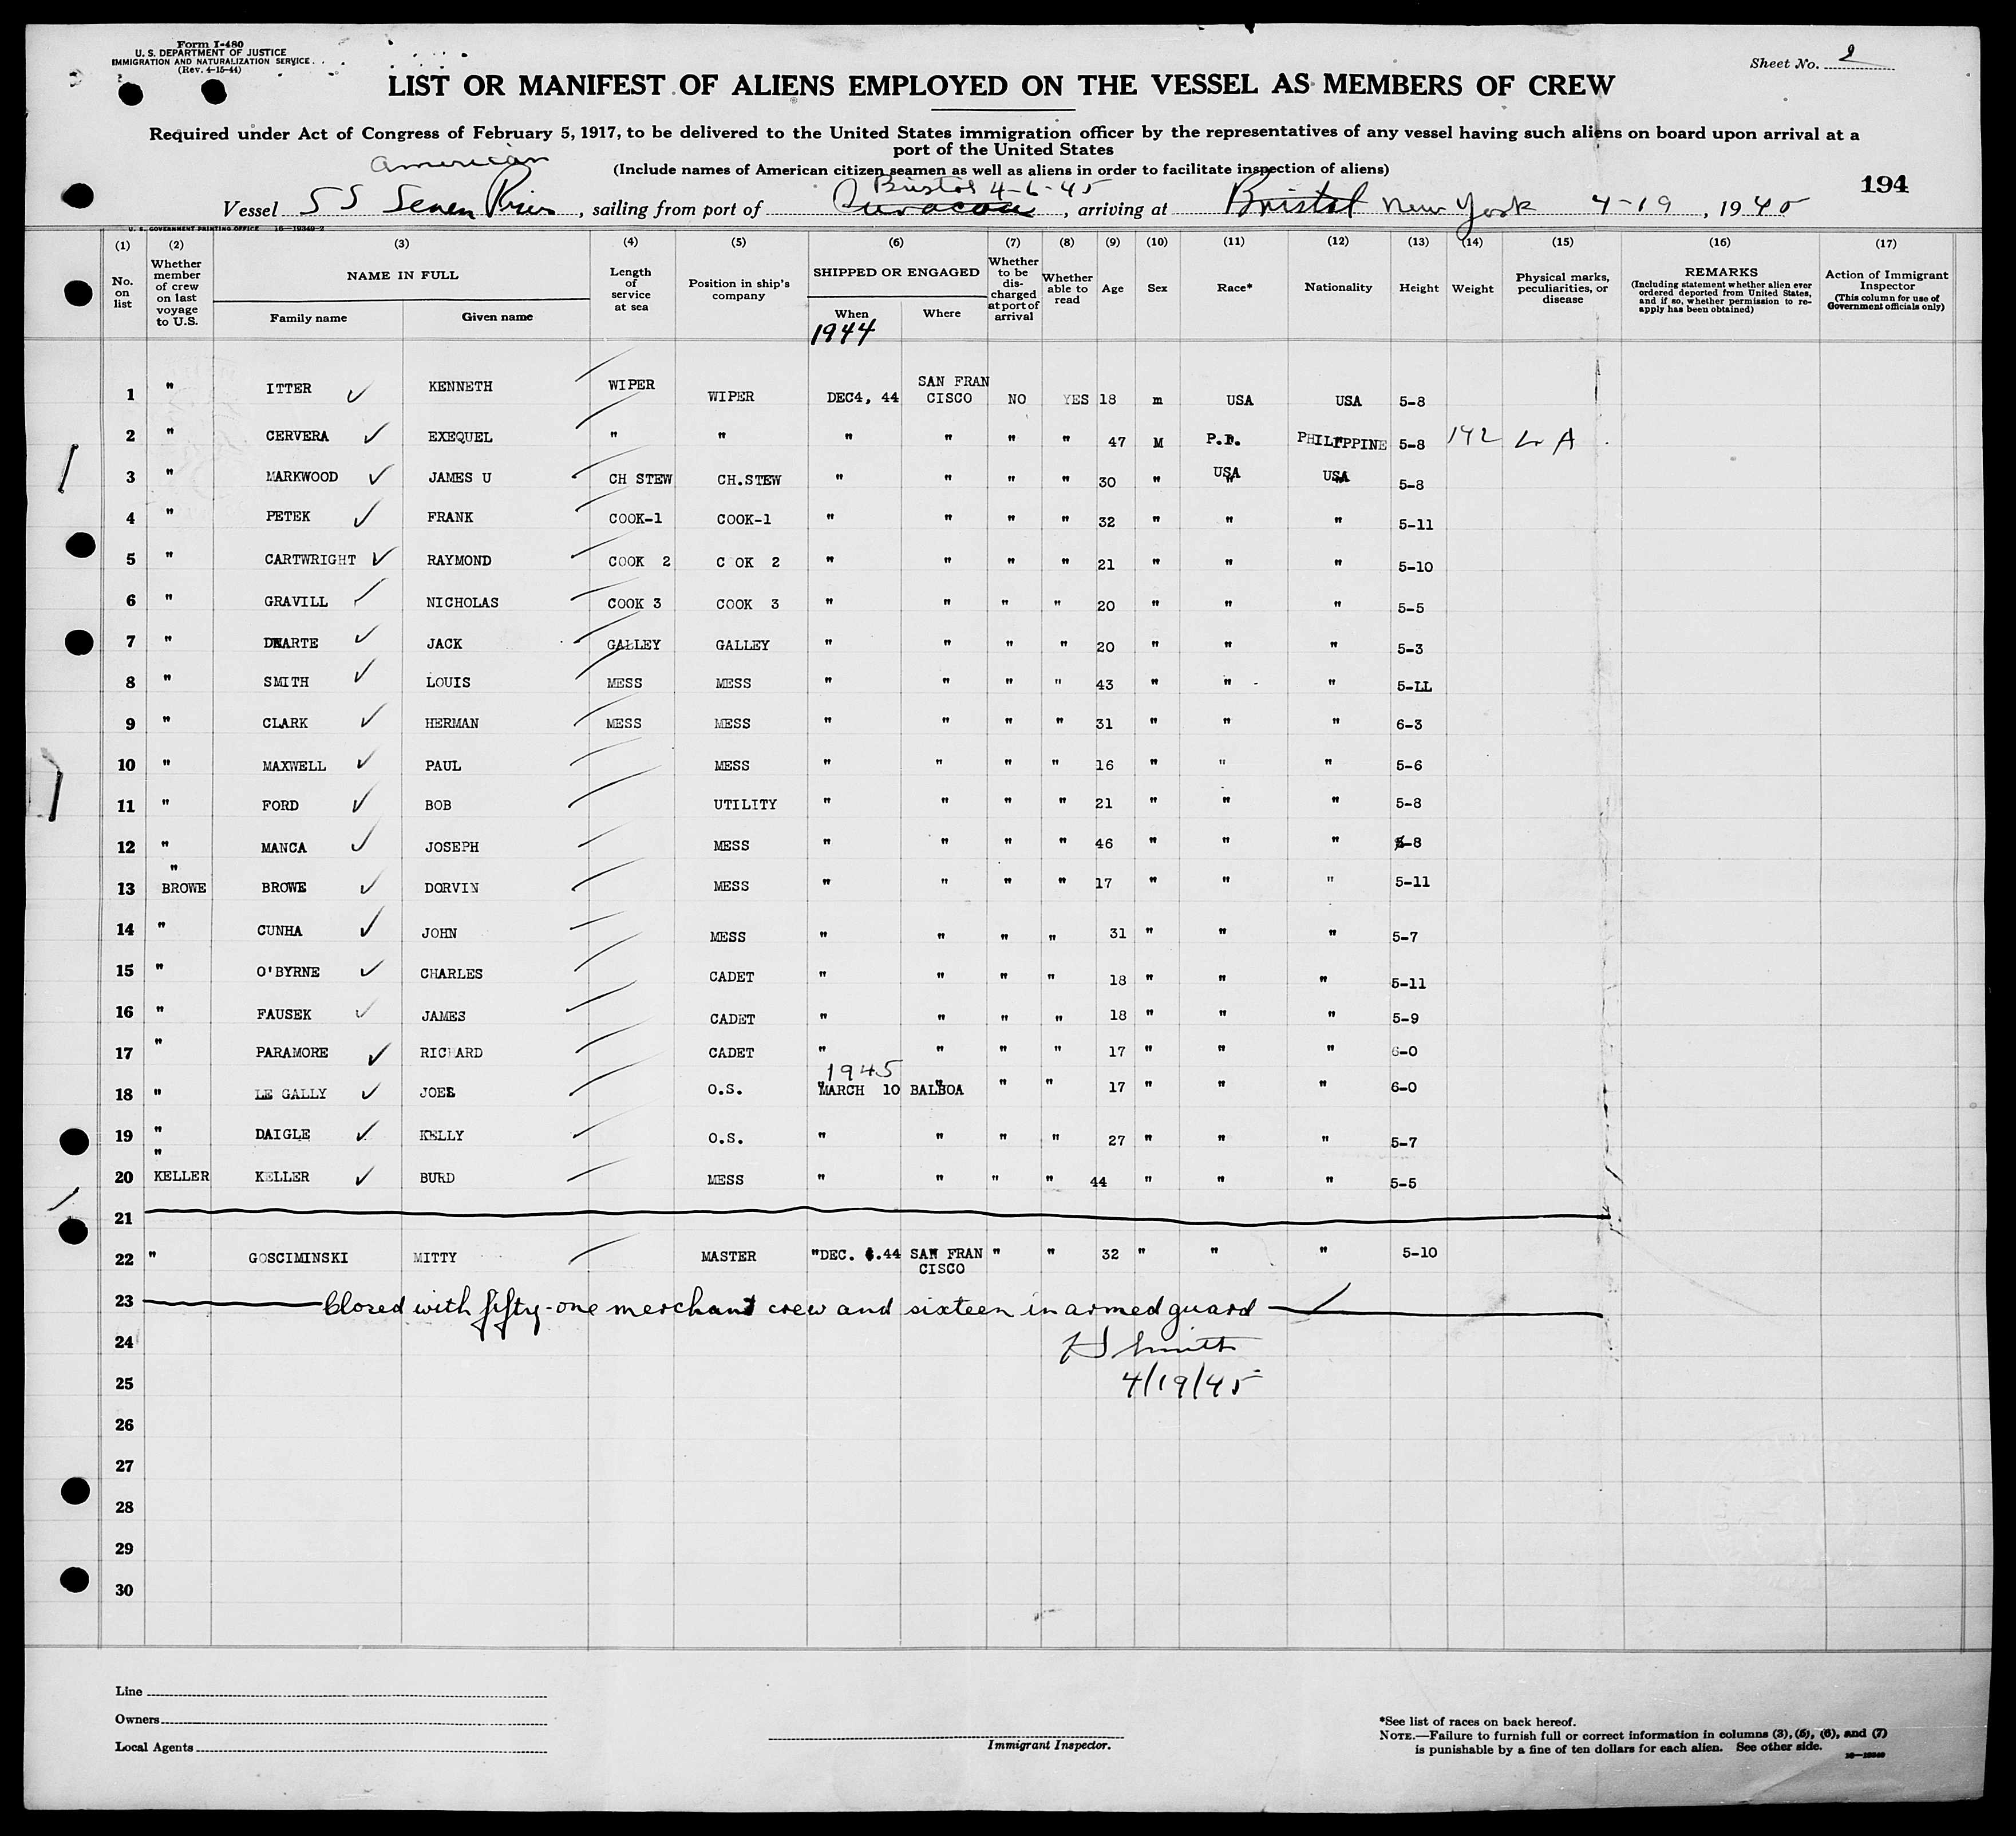 Form I-480
U. S. DEPARTMENT OF JUSTICE
IMMIGRATION AND NATURALIZATION SERVICE
(Rev. 4-15-44)
Sheet No. 2
LIST OR MANIFEST OF ALIENS EMPLOYED ON THE VESSEL AS MEMBERS OF CREW
Required under Act of Congress of February 5, 1917, to be delivered to the United States immigration officer by the representatives of any vessel having such aliens on board upon arrival at a
port of the United States
(Include names of American citizen seamen as well as aliens in order to facilitate inspection of aliens)
194
American
Bristol 4-6-45
Vessel SS Seven Pines, sailing from port of Curacao, arriving at Bristol New York 4-19, 1945
U. S. GOVERNMENT PRINTING OFFICE 16—19349-2
(1) (2) (3) (4) (5) (6) (7) (8) (9) (10) (11) (12) (13) (14) (15) (16) (17)
No. on list
Whether member of crew on last voyage to U.S.
NAME IN FULL
Family name
Given name
Length of service at sea
Position in ship's company
SHIPPED OR ENGAGED
When
Where
Whether to be discharged at port of arrival
Whether able to read
Age
Sex
Race*
Nationality
Height
Weight
Physical marks, peculiarities, or disease
REMARKS
(Including statement whether alien ever ordered deported from United States, and if so, whether permission to reapply has been obtained)
Action of Immigrant Inspector
(This column for use of Government officials only)
1944
1 " ITTER KENNETH WIPER WIPER DEC4, 44 SAN FRAN CISCO NO YES 18 m USA USA 5-8
2 " CERVERA EXEQUEL " " " " " " 47 M P.I. PHILIPPINE 5-8 142 L A
3 " MARKWOOD JAMES U CH STEW CH.STEW " " " " 30 " USA USA 5-8
4 " PETEK FRANK COOK-1 COOK-1 " " " " 32 " " " 5-11
5 " CARTWRIGHT RAYMOND COOK 2 C OK 2 " " " " 21 " " " 5-10
6 " GRAVILL NICHOLAS COOK 3 COOK 3 " " " " 20 " " " 5-5
7 " JACK GALLEY GALLEY " " " " 20 " " " 5-3
8 " SMITH LOUIS MESS MESS " " " " 43 " " " 5-LL
9 " CLARK HERMAN MESS MESS " " " " 31 " " " 6-3
10 " MAXWELL PAUL MESS " " " " 16 " " " 5-6
11 " FORD BOB UTILITY " " " " 21 " " " 5-8
12 " MANCA JOSEPH MESS " " " " 46 " " " 5-8
"
13 BROWE BROWE DORVIN MESS " " " " 17 " " " 5-11
14 " CUNHA JOHN MESS " " " " 31 " " " 5-7
15 " O'BYRNE CHARLES CADET " " " " 18 " " " 5-11
16 " FAUSEK JAMES CADET " " " " 18 " " " 5-9
17 " PARAMORE RICHARD CADET " " " " 17 " " " 6-0
1945
18 " LE GALLY JOEL O.S. MARCH 10 BALBOA " " 17 " " " 6-0
19 " DAIGLE KELLY O.S. " " " " 27 " " " 5-7
"
20 KELLER KELLER BURD MESS " " " " 44 " " " 5-5
21
22 " GOSCIMINSKI MITTY MASTER "DEC. 4.44 SAN FRAN CISCO " " 32 " " " 5-10
23 Closed with fifty-one merchant crew and sixteen in armed guard
24 H Smith
25 4/19/45
26
27
28
29
30
Line
Owners
Local Agents
Immigrant Inspector.
*See list of races on back hereof.
NOTE.—Failure to furnish full or correct information in columns (3), (5), (6), and (7)
is punishable by a fine of ten dollars for each alien. See other side.
16—19349